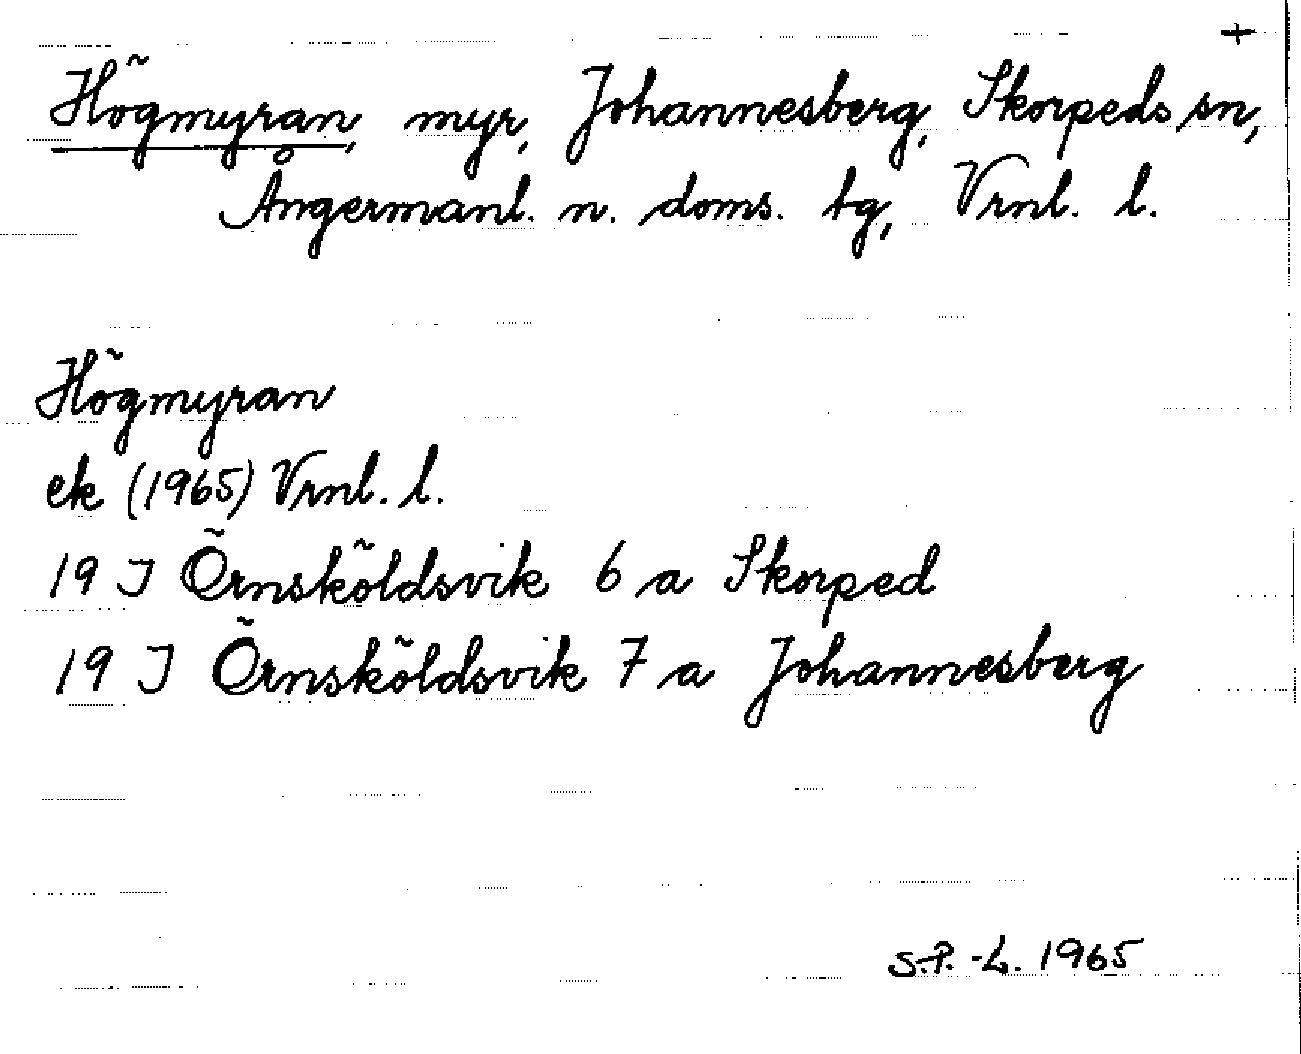 +
Högmyran, myr, Johannesberg, Skorpeds sn,
Ångermanl. n. doms. tg, Vrnl. l.
Högmyran
ek (1965) Vrnl. l.
19 J Örnsköldsvik 6 a Skorped
19 J Örnsköldsvik 7 a Johannesberg
S.P.-L. 1965